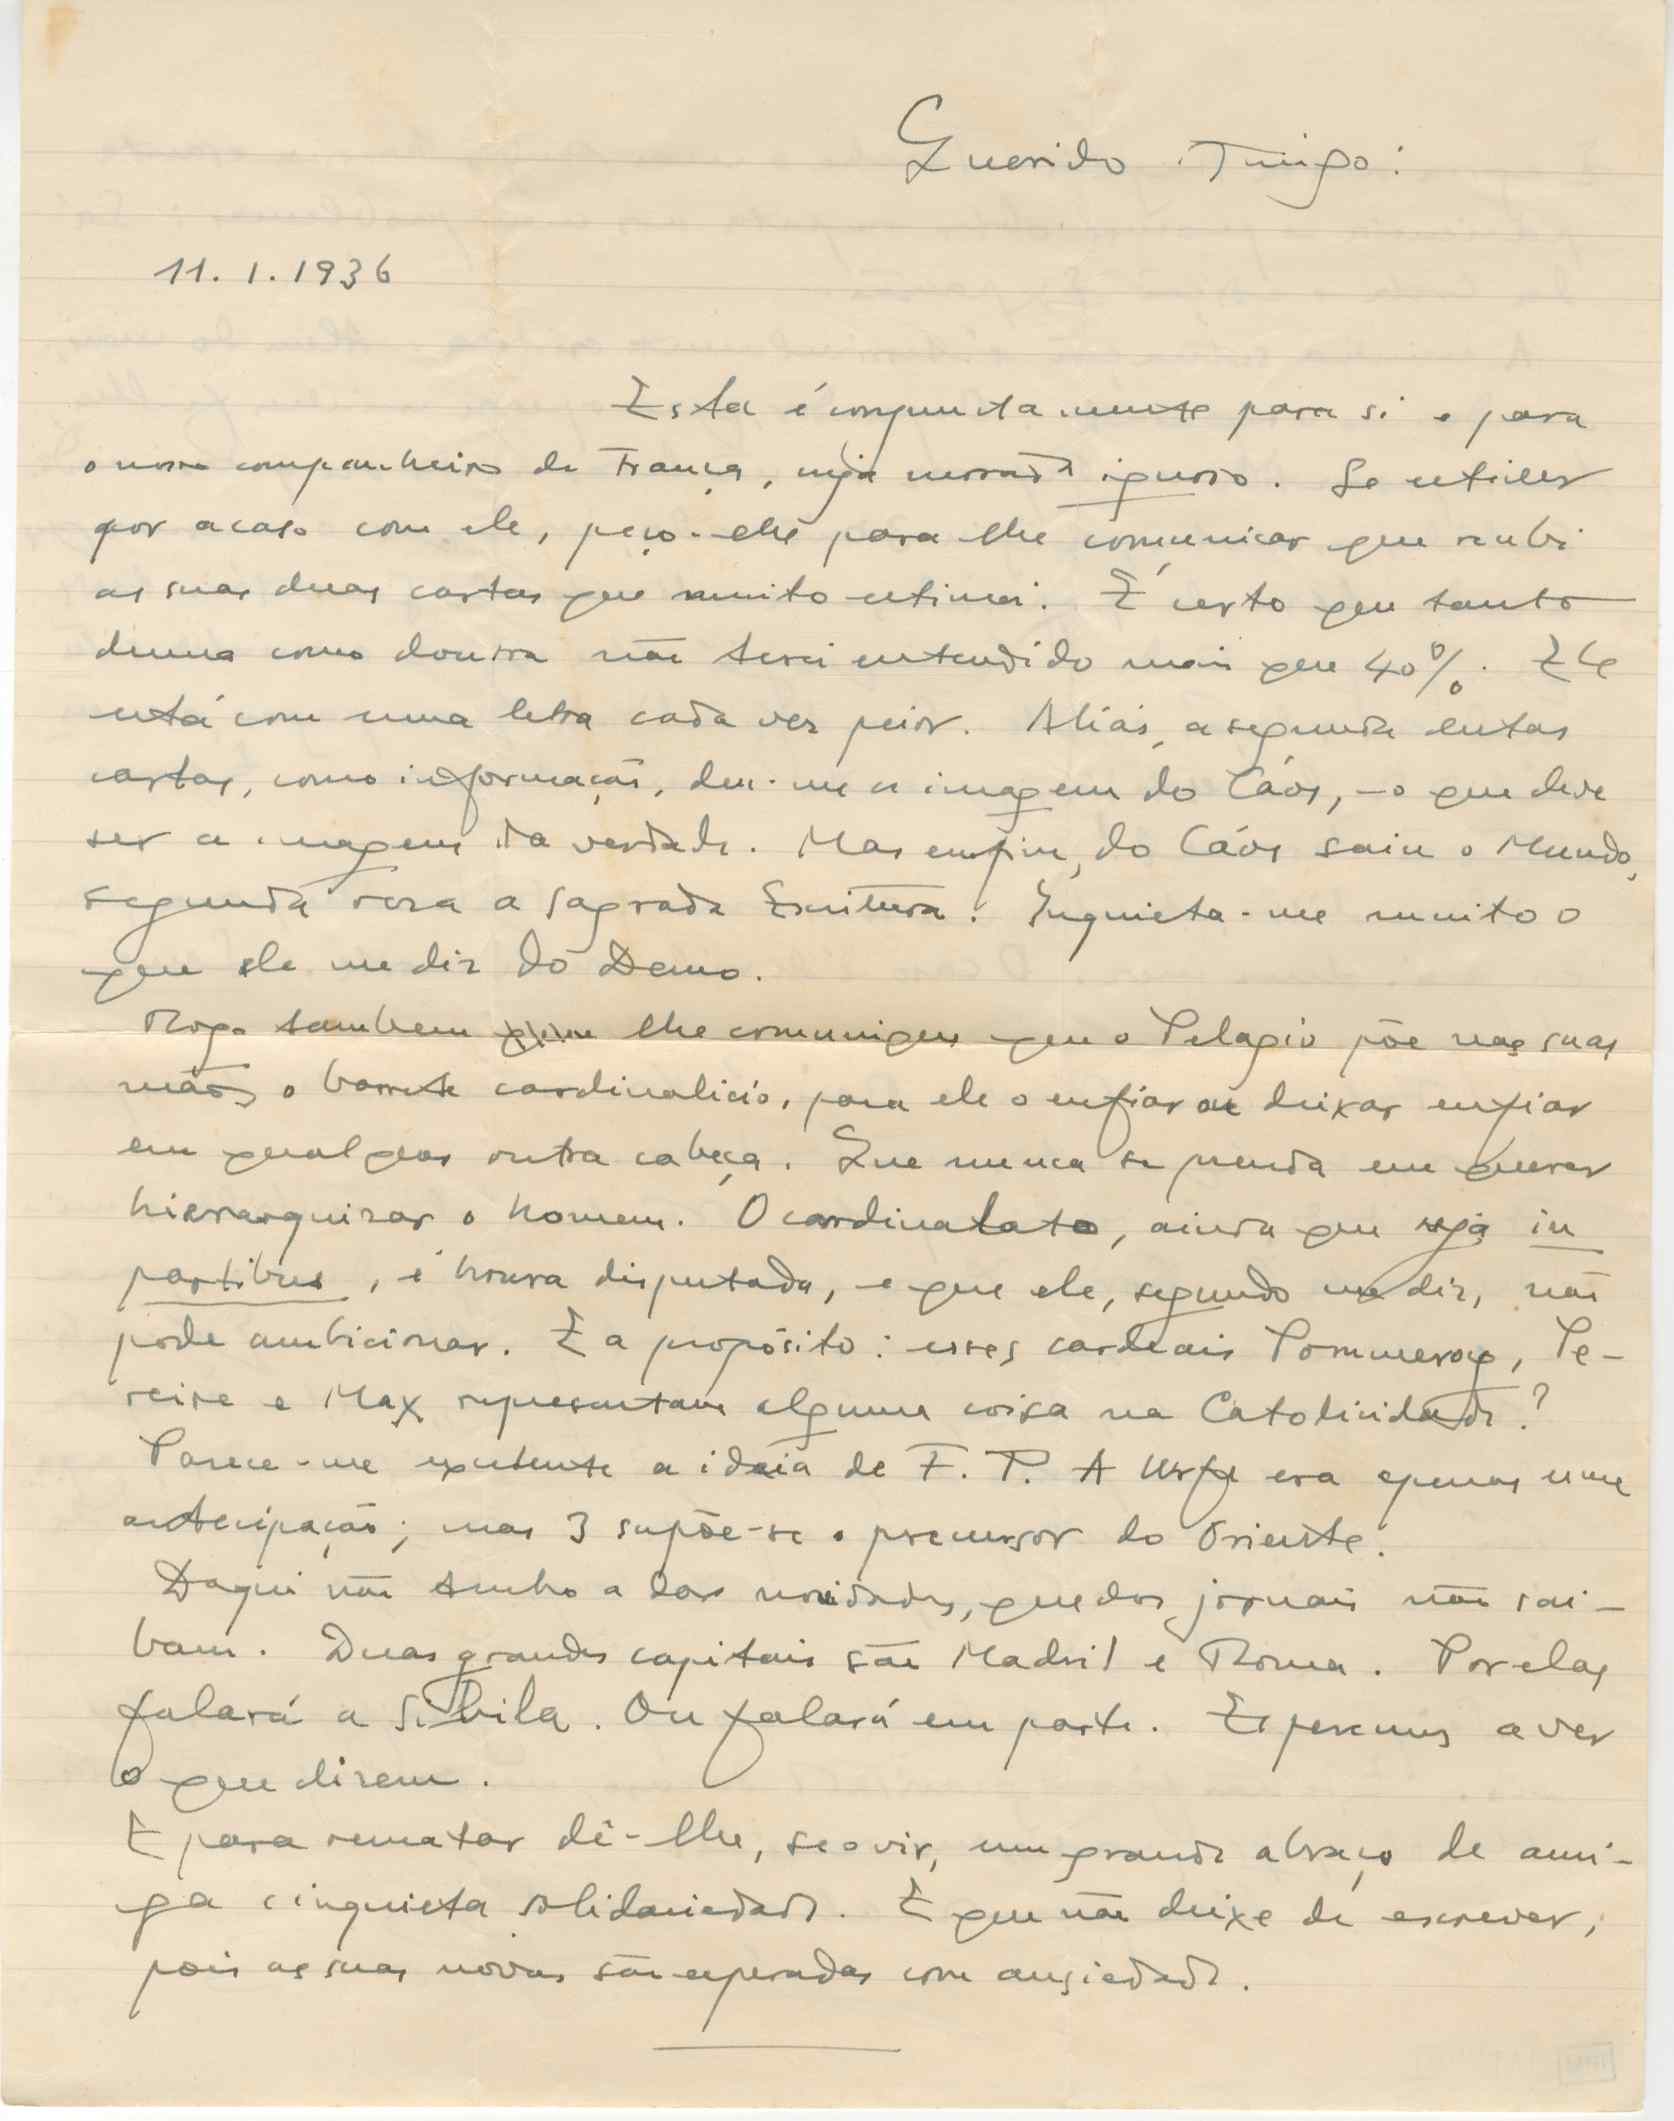 Querido Amigo:
11.1.1936
Esta é conjuntamente para si e para
o nosso companheiro de França, cuja morada ignoro. Se estiver
por acaso com ele, peço-lhe para lhe comunicar que recebi
as suas duas cartas que muito estimei. É certo que tanto
duma como doutra não terei entendido mais que 40%. Ele
está com uma letra cada vez peior. Aliás, a segunda destas
cartas, como informação, deu-me a imagem do Cáos, – o que deve
ser a imagem da verdade. Mas enfim, do Cáos saiu o Mundo,
segundo reza a Sagrada Escritura. Inquieta-me muito o
que ele me diz do Demo.
Rogo tambem lhe comunique que o Pelagio põe nas suas
mãos o barrete cardinalicio, para ele o enfiar ou deixar enfiar
em qualquer outra cabeça. Que nunca se prenda em querer
hierarquizar o homem. O cardinalato, ainda que seja in
partibus, é honra disputada, e que ele, segundo me diz, não
pode ambicionar. E a propósito: esses cardeais Pommeroy, Pe-
reire e Max representam alguma coisa na Catolicidade?
Parece-me excelente a ideia de F. P. A era apenas uma
antecipação; mas 3 supõe-se o precursor do Oriente.
Daqui não tenho a dar novidades, que dos jornais não sai-
bam. Duas grandes capitais são Madrid e Roma. Por elas
falará a Sibila. Ou falará em parte. Esperemos a ver
o que dizem.
E para rematar dê-lhe, se o vir, um grande abraço de ami-
ga e inquieta solidariedade. E que não deixe de escrever,
pois as suas novas são esperadas com ansiedade.